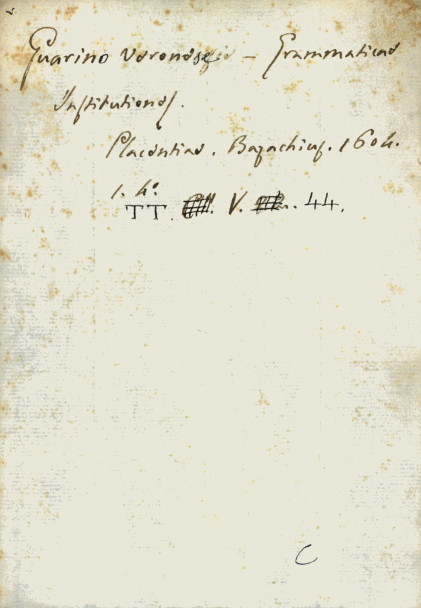 Guarino Veronese — Grammaticae
Institutiones.
Placentiae. Bazachius. 1604.
1. 4°.
TT. V. 44.
C